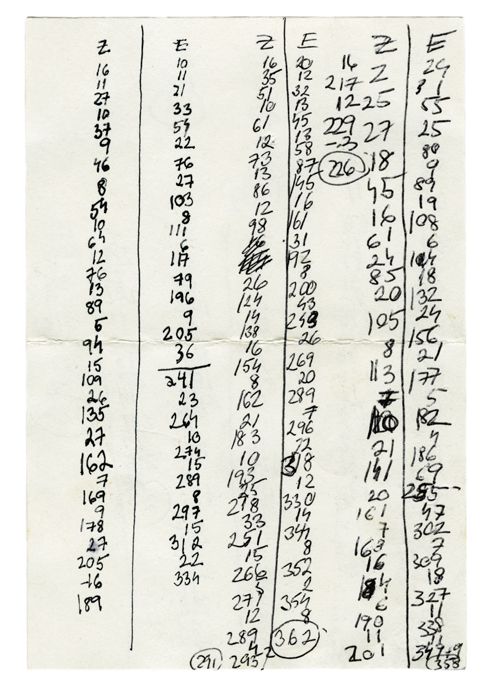 Z
16
11
27
10
37
9
46
8
54
10
64
12
76
13
89
5
94
15
109
26
135
27
162
7
169
9
178
27
205
-16
189
E
10
11
21
33
54
22
76
27
103
8
111
6
117
79
196
9
205
36
241
23
264
10
274
15
289
8
297
15
312
22
334
Z
16
35
51
10
61
12
73
13
86
12
98
26
124
14
138
16
154
8
162
21
183
10
193
33
251
15
266
12
289
291
E
20
12
32
13
45
13
58
87
145
16
161
31
192
8
200
43
243
26
269
20
289
7
296
22
318
12
330
14
344
8
352
2
354
8
362
217
12
229
-3
226
Z
Z
25
27
18
45
16
61
24
85
20
105
8
113
7
21
141
20
161
7
168
16
184
6
190
11
201
E
24
55
25
9
89
19
108
6
114
18
132
24
156
21
177
5
182
4
186
69
255
47
302
7
309
18
327
11
338
11
349+9